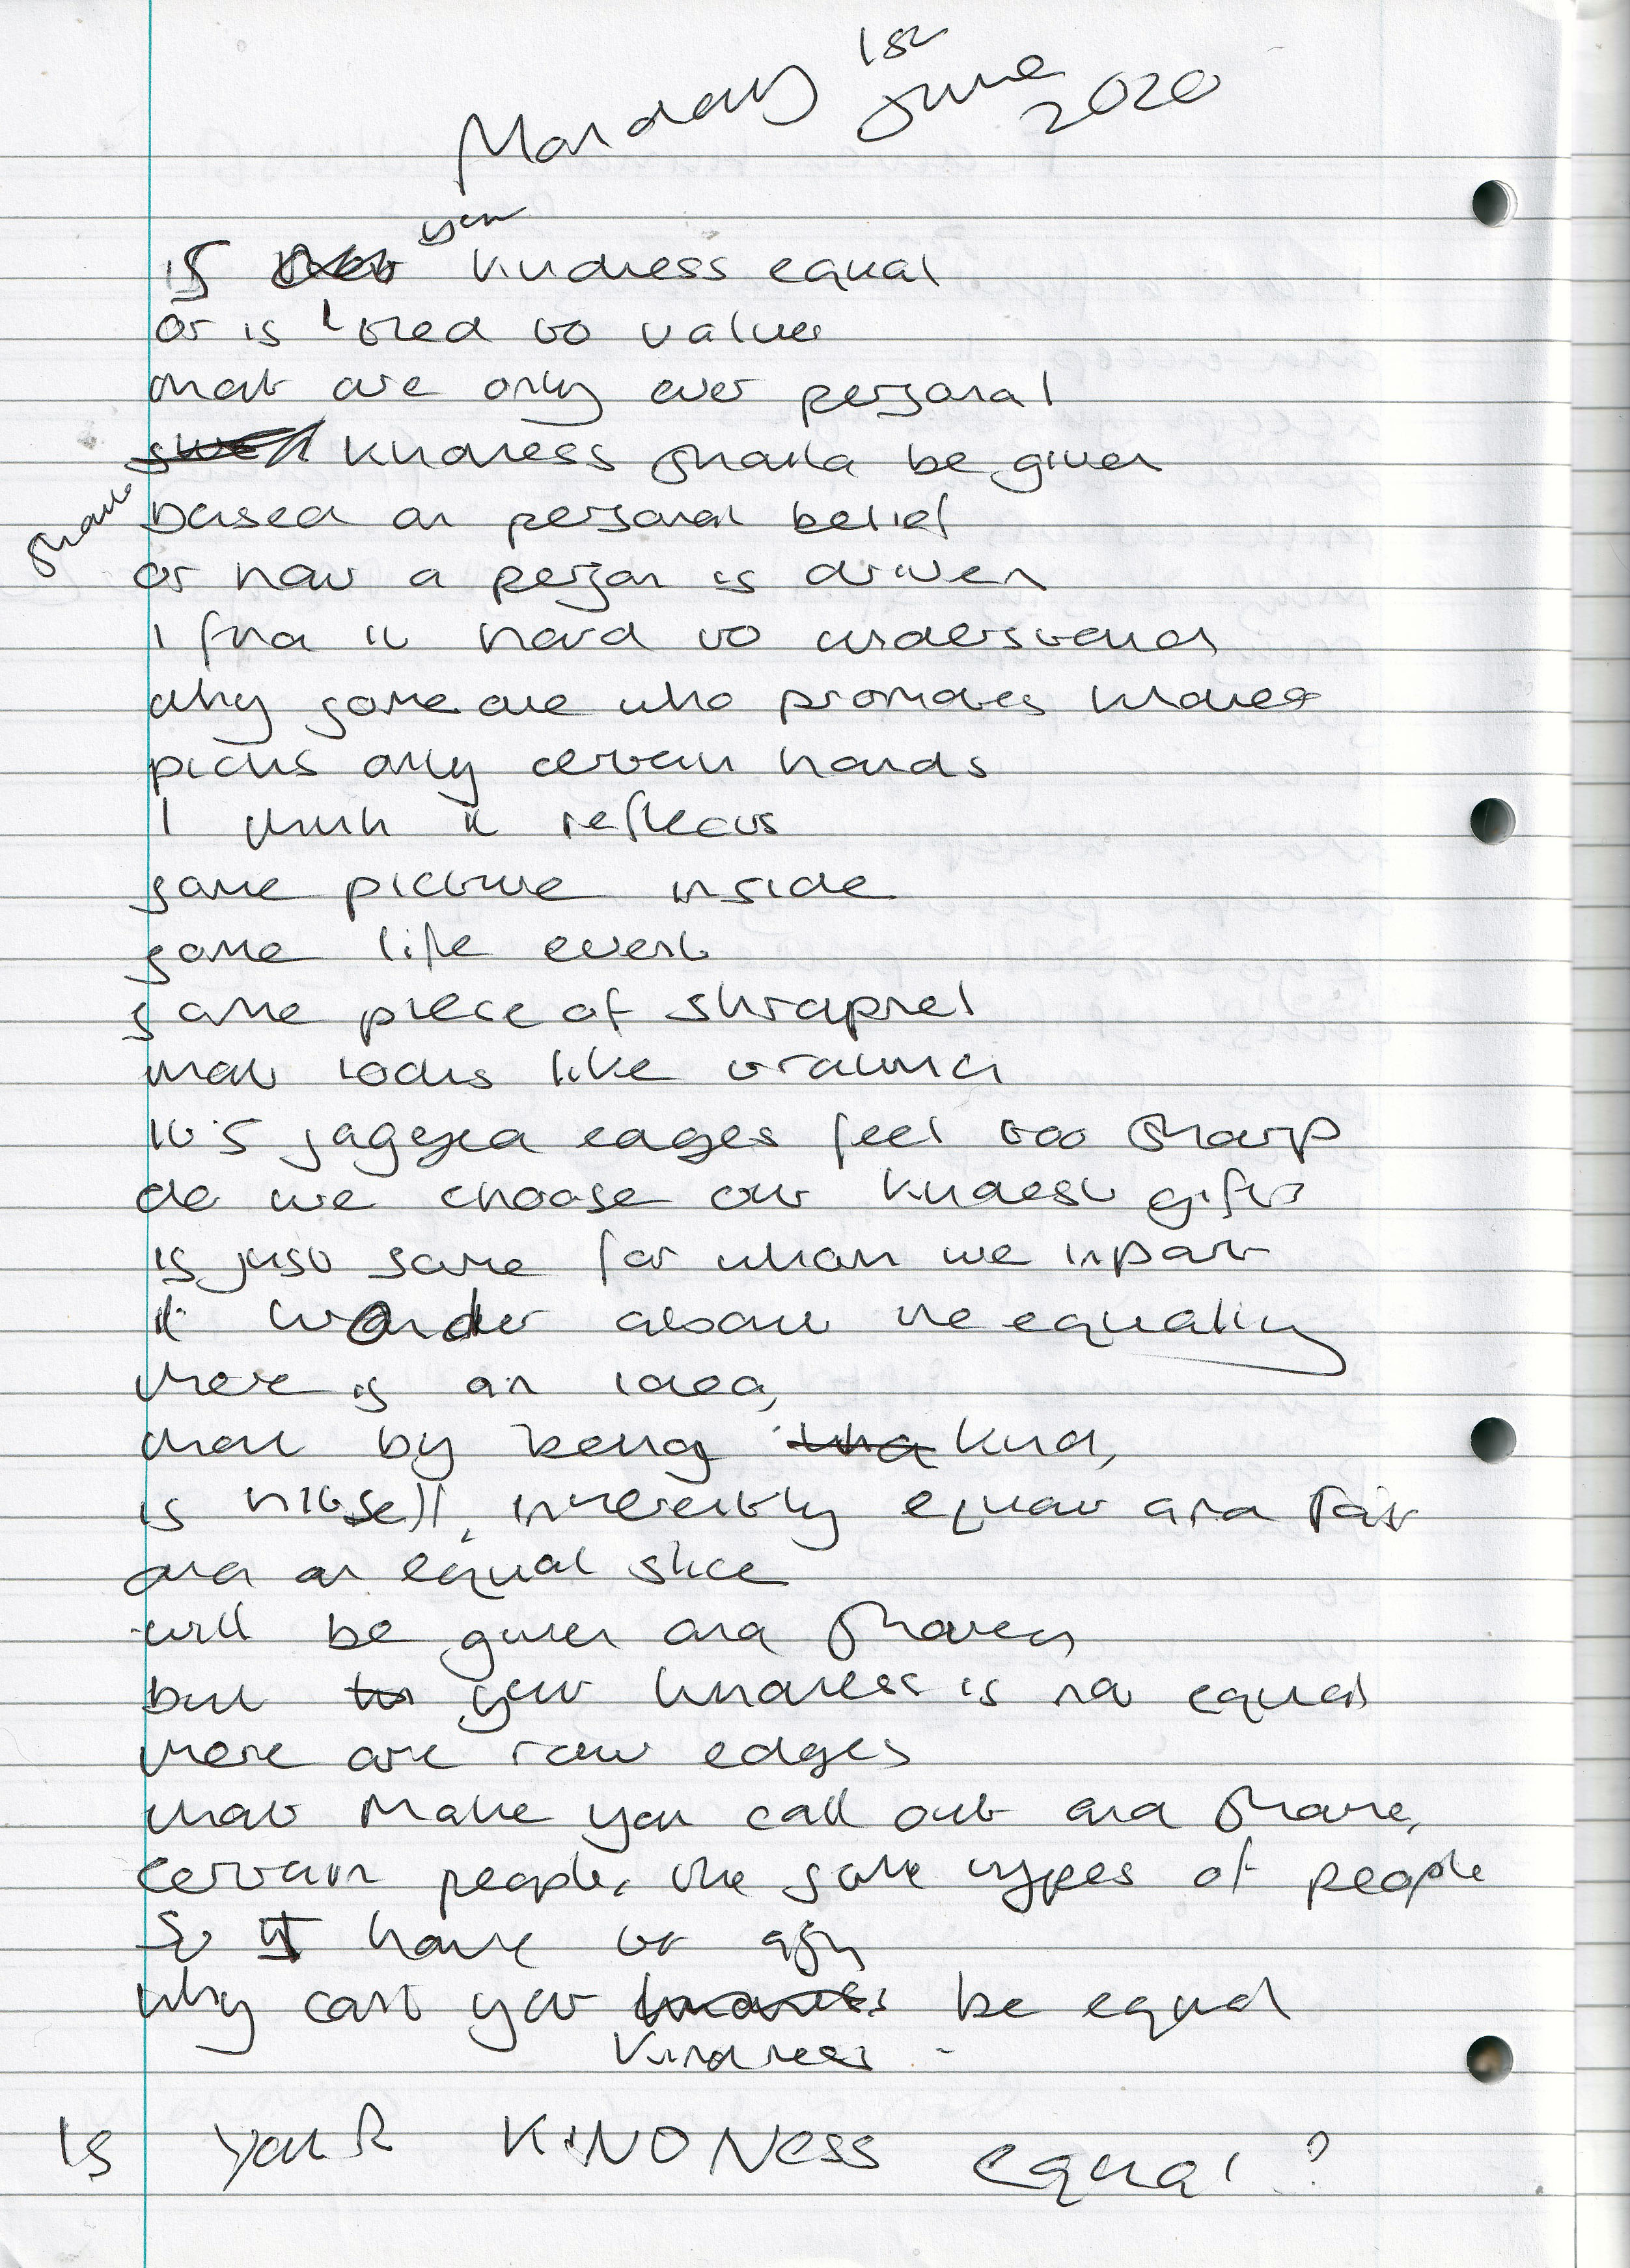 Monday 1st June 2020
your
If kindness equal
or is tied to values
that are only ever personal
kindness should be given
should
based on personal belief
or how a person is driven
I find it hard to understand
why someone who promotes kindness
picks only certain hands
I think it reflects
some picture inside
some life event
some piece of shrapnel
that looks like trauma
it's jagged edges feel too sharp
do we choose our kindest gifts
is just some for whom we inpart
I wonder about the equality
there is an idea,
that by being kind,
is itself, inherently equal and fair
and an equal slice
will be given and shared
but your kindness is not equal
there are raw edges
that make you call out and shame,
certain people, the same types of people
So I have to ask
why can't your be equal
kindness
Is your KINDNESS equal?